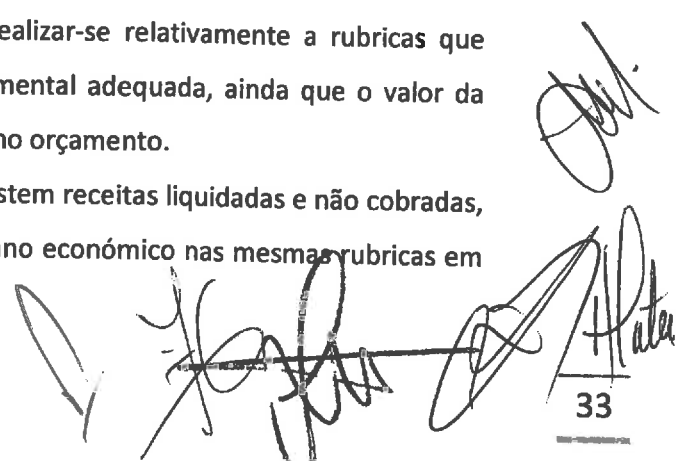 ealizar-se relativamente a rubricas que
mental adequada, ainda que o valor da
no orçamento.
stem receitas liquidadas e não cobradas,
no económico nas mesmas rubricas em
33